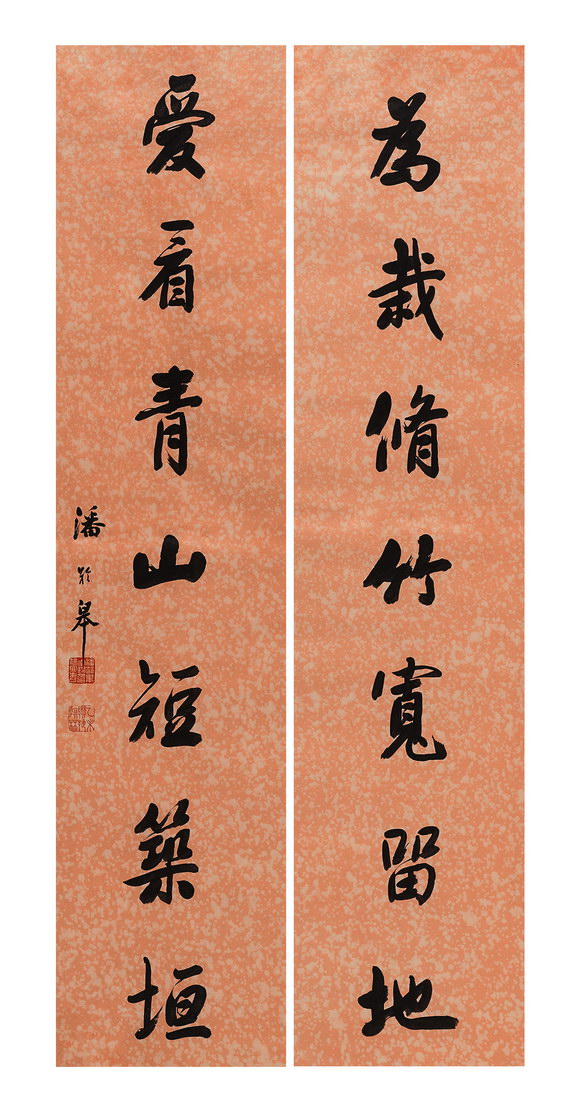 為栽脩竹寬留地
愛看青山短築垣
潘齡皋